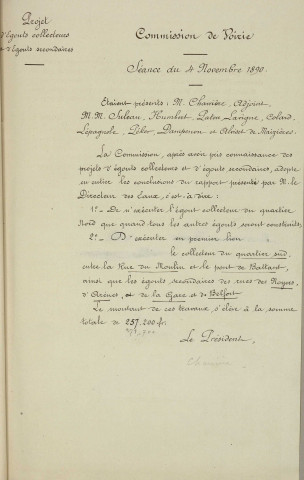 Projet
d'égouts collecteurs
et d'égouts secondaires
Commission de Voirie
Séance du 4 Novembre 1890.
Étaient présents : M. Charrière, Adjoint,
M.M. Humbert, Paton, Lavigne, Colard,
Lépagnole, et Alviset de Maizières.
La Commission, après avoir pris connaissance des
projets d'égouts collecteurs et d'égouts secondaires, adopte
en entier les conclusions du rapport présenté par M. le
Directeur des Eaux, c'est-à-dire :
1° De n'exécuter l'égout collecteur du quartier
Nord que quand tous les autres égouts seront construits,
2° D'exécuter en premier lieu
le collecteur du quartier sud,
entre la Rue du Moulin et le pont de Battant,
ainsi que les égouts secondaires des rues des Noyers,
d'Arènes, de la Gare et de Belfort
Le montant de ces travaux s'élève à la somme
totale de 257.200 fr.
Le Président,